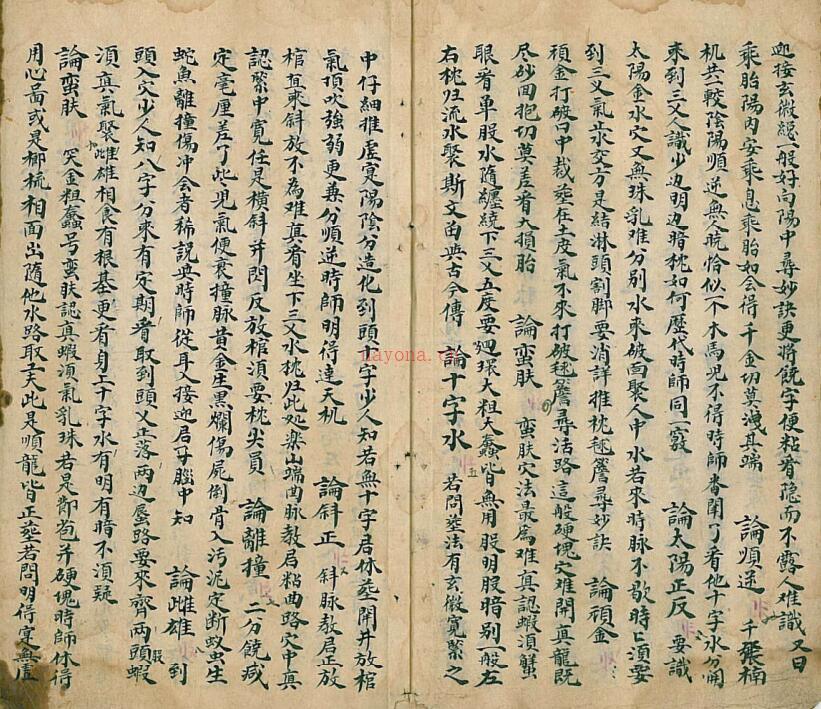 迎接玄微総一般好向陽中尋妙訣更將饒字便粘脊隐而不露人难識 又曰
乘胎陽內安乘息乘胎如会得千金切莫洩其端 論順逆 千般楠
机共一較陰陽順逆無人晓恰似一木馬児不得時師看閑了看他十字水分開
來到三叉人識少边明边暗枕如何歷代時師同一竅 論太陽正反 要識
太陽金水穴又無珠乳难分别水來破面聚人中水若來時脉不歇時上須要
到三叉氣永交方是結淋頭割脚要消詳推枕毬簷尋妙訣 論頑金
頑金打破口中裁葬在土皮氣不來打破毬簷尋活路這般硬塊穴难開真龍既
尽砂回抱切莫差脊大損胎 論蛮肤 蛮肤穴法最為难真認蝦須蟹
眼看单股水隨纏繞下三叉五度要廻環大粗大蠢皆無用股明股暗别一般左
右枕归流水聚斯文留與古今傳 論十字水 若問葬法有玄微寛緊之
中仔細推虛實陽陰分造化到頭十字少人知若無十字君休葬開井放棺
氣頂吹強弱更兼分順逆時師明得達天机 論斜正 斜脉教君正放
棺直來斜放不為难真看坐下三叉水枕归此処樂山端曲脉教君粘曲路穴中真
認緊中寛任是横斜并閃反放棺須要枕尖員 論離撞 二分饒减
定毫厘差了些児氣便衰撞脉貴金生黑爛傷屍倒骨入污泥定断蚁虫生
蛇魚離撞傷冲会者稀説與時師從耳入接迎居子腦中知 論雌雄 到
頭入穴少人知八字分來有定期看取到頭又正落两边蜃路要來齊两頭蝦
須真氣聚雌雄相食有根基更看身上十字水有明有暗不須疑
論蛮肤 突金粗蠢号蛮肤認真蝦須氣乳珠若是鄣苞并硬塊時師休得
用心啚或是梛梳相面出隨他水路取工夫此是順龍皆正葬若問明得寔無虛
nayona.cn